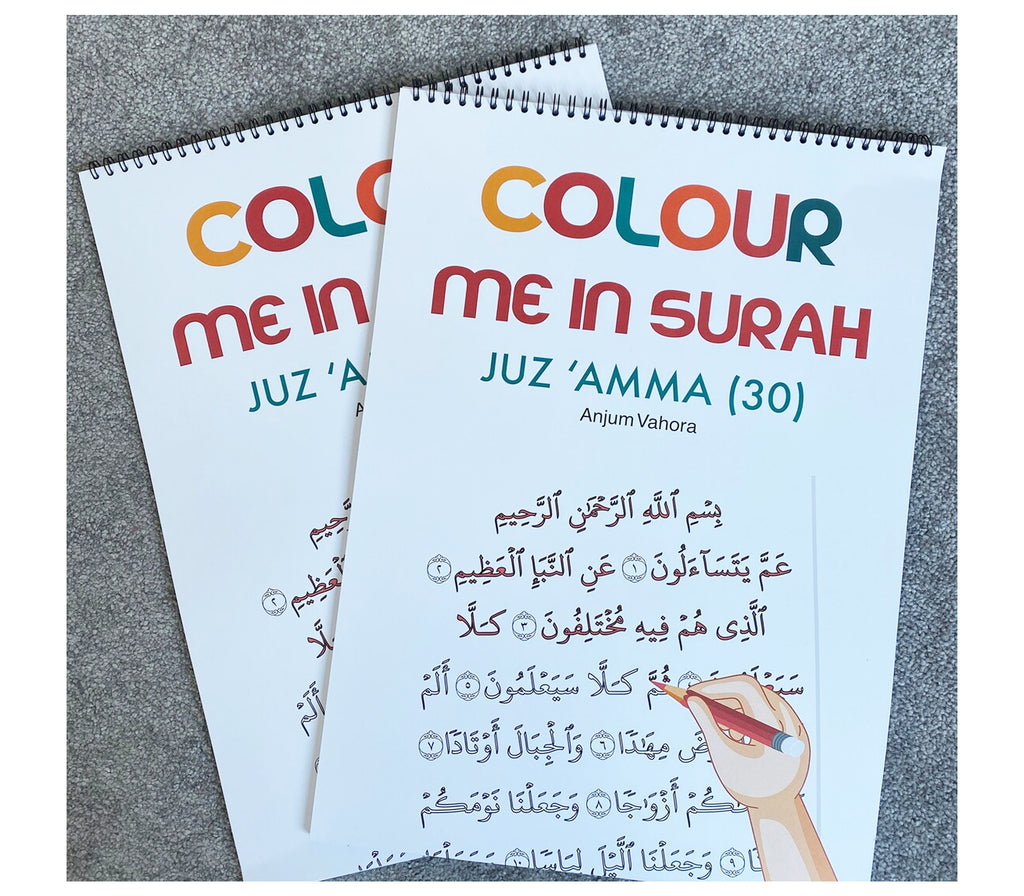 COLOUR
ME IN SURAH
JUZ ‘AMMA (30)
Anjum Vahora
بِسْمِ ٱللَّهِ ٱلرَّحْمَٰنِ ٱلرَّحِيمِ
عَمَّ يَتَسَآءَلُونَ ١ عَنِ ٱلنَّبَإِ ٱلْعَظِيمِ ٢
ٱلَّذِى هُمْ فِيهِ مُخْتَلِفُونَ ٣ كَلَّا
ثُمَّ كَلَّا سَيَعْلَمُونَ ٥ أَلَمْ
مِهَٰدًا ٦ وَٱلْجِبَالَ أَوْتَادًا ٧
أَزْوَٰجًا ٨ وَجَعَلْنَا نَوْمَكُمْ
٩ وَجَعَلْنَا ٱلَّيْلَ لِبَاسًا ١٠
COL
ME IN
JUZ ‘A
ٱلْعَظِيمِ ٢
أَلَمْ